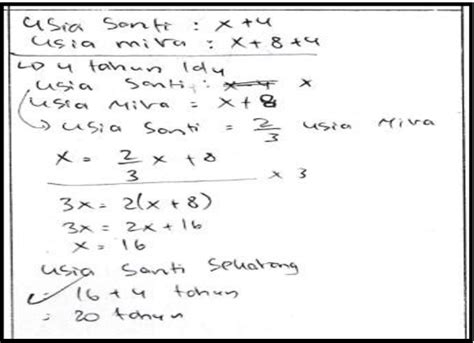 Usia Santi : x+4
Usia mira : x+8+4
↳ 4 tahun ldu
Usia Santi : x-4 x
Usia Mira = x+8
↳ usia Santi = 2/3 usia Mira
x = 2/3 x + 8
x 3
3x = 2(x+8)
3x = 2x+16
x = 16
Usia Santi Sekarang
= 16 + 4 tahun
= 20 tahun